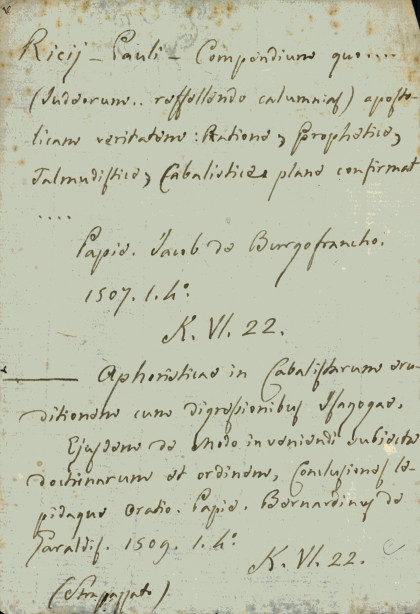 Ricij - Pauli - Compendium quo....
(Judaeorum.. refellendo calumnias) aposto-
licam veritatem: Ratione, Prophetice,
Talmudistice, Cabalistice plane confirmat
....
Papie. Jacob de Burgofrancho.
1507. 1. 4°.
K. VI. 22.
— Aphoristicae in Cabalistarum eru-
ditionem cum digressionibus Isagogae.
Ejusdem de Modo inveniendi subiecta
doctrinarum et ordinem, Conclusiones le-
pidaque Oratio. Papie. Bernardinus de
Garaldis. 1509. 1. 4°.
K. VI. 22.
(Strapazzato)